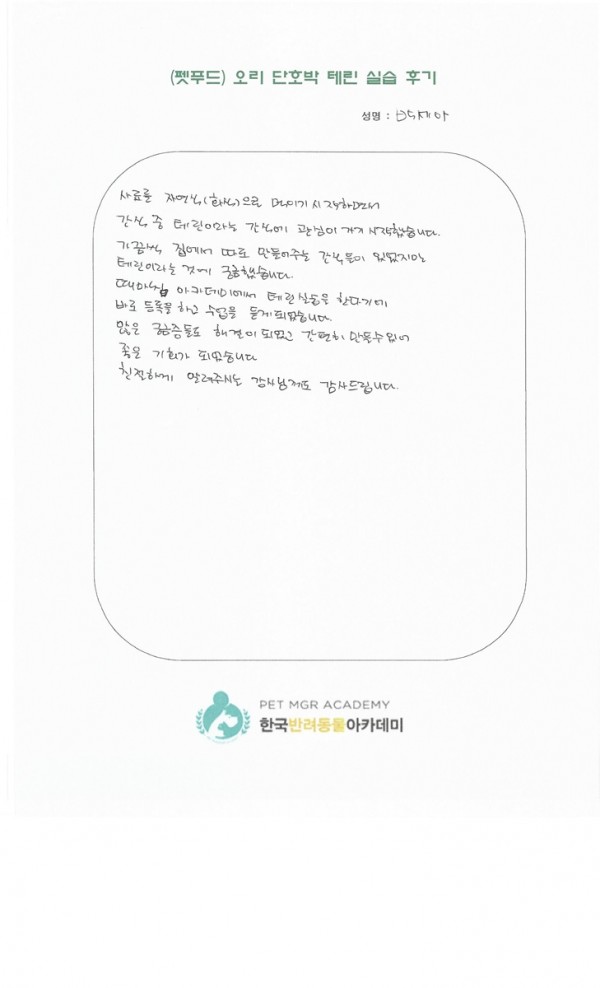 (펫푸드) 오리 단호박 테린 실습 후기
성명 :
사료를 자연식(화식)으로 먹이기 시작하면서
간식 중 테린이라는 간식에 관심이 가기 시작했습니다.
가끔씩 집에서 따로 만들어주는 간식들이 있었지만
테린이라는 것에 궁금했습니다.
때마침 아카데미에서 테린실습을 한다기에
바로 등록을 하고 수업을 듣게되었습니다.
많은 궁금증들도 해결이 되었고 간편히 만들수있어
좋은 기회가 되었습니다
친절하게 알려주시는 강사님께도 감사드립니다.
PET MGR ACADEMY
한국반려동물아카데미